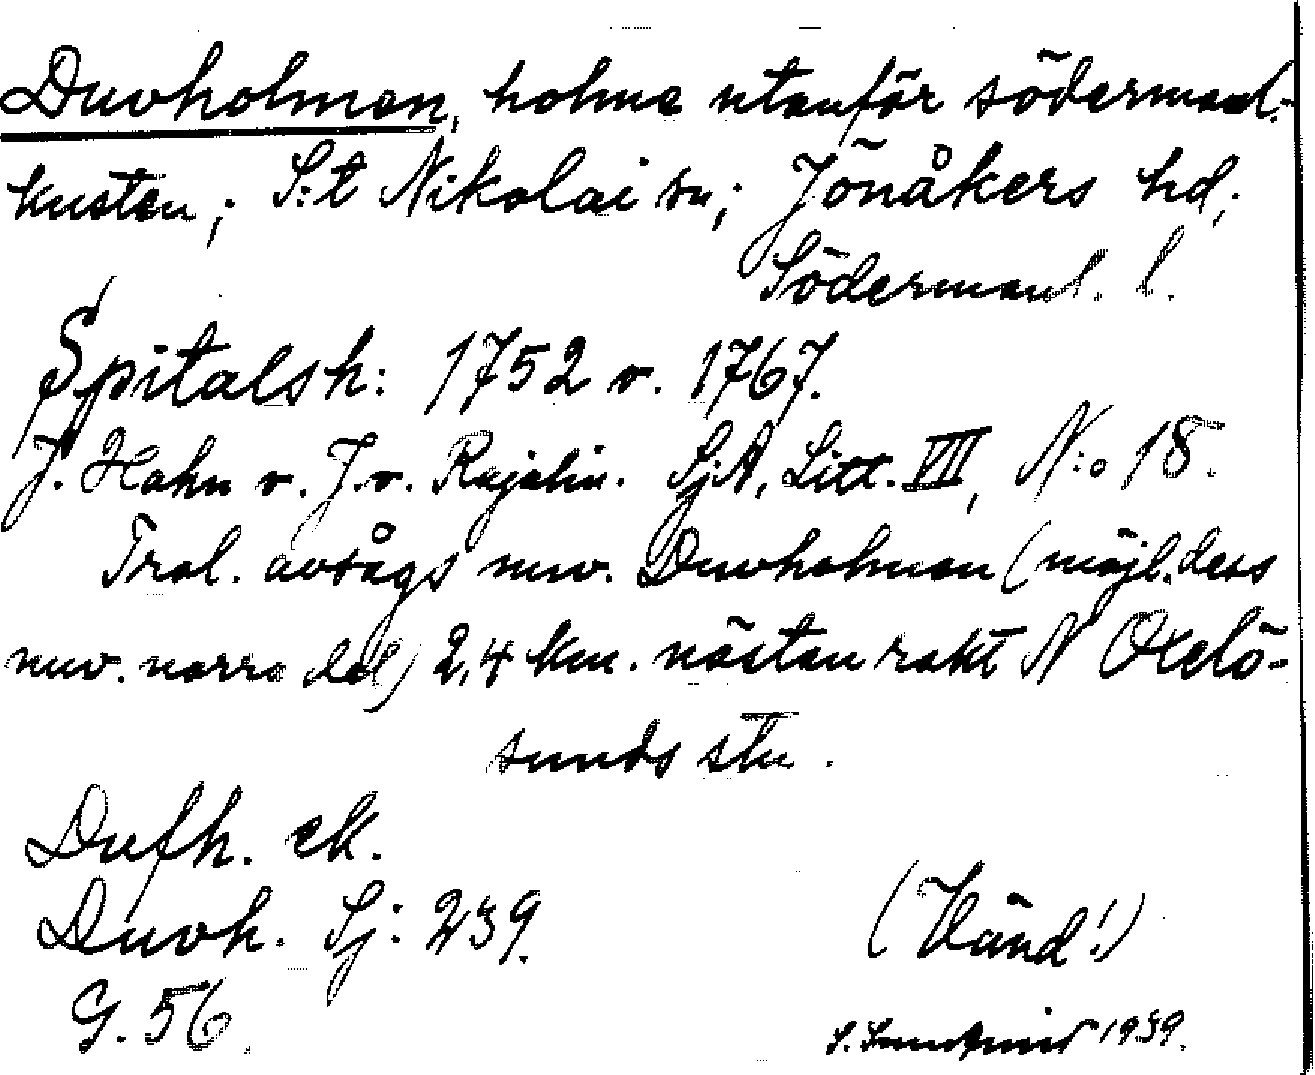 Duvholmen, holme utanför södermanl.-
kusten; S:t Nikolai sn; Jönåkers hd;
Södermanl. l.
Spitalsh: 1752 v. 1767.
J. Hahn v. J. v. Rajalin. SjA, Litt. VII, N:o 18.
Trol. avsågs nuv. Duvholmen (möjl. dess
nuv. norra del) 2,4 km. nästan rakt N Oxelö-
sunds stn.
Dufh. ek.
Duvh. Sj: 239.
(Vänd!)
G. 56.
1939.